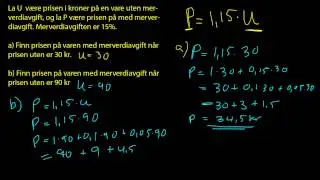 La U være prisen i kroner på en vare uten mer-
verdiavgift, og la P være prisen på med merver-
diavgift. Merverdiavgiften er 15%.
a) Finn prisen på varen med merverdiavgift når
prisen uten er 30 kr. U = 30
b) Finn prisen på varen med merverdiavgift når
prisen uten er 90 kr U = 90
b) P = 1,15 · U
P = 1,15 · 90
P = 1·90 + 0,1·90 + 0,05·90
= 90 + 9 + 4,5
P = 1,15 · U
a) P = 1,15 · 30
P = 1·30 + 0,1·30 + 0,05·30
= 30 + 3 + 1,5
P = 34,5 kr